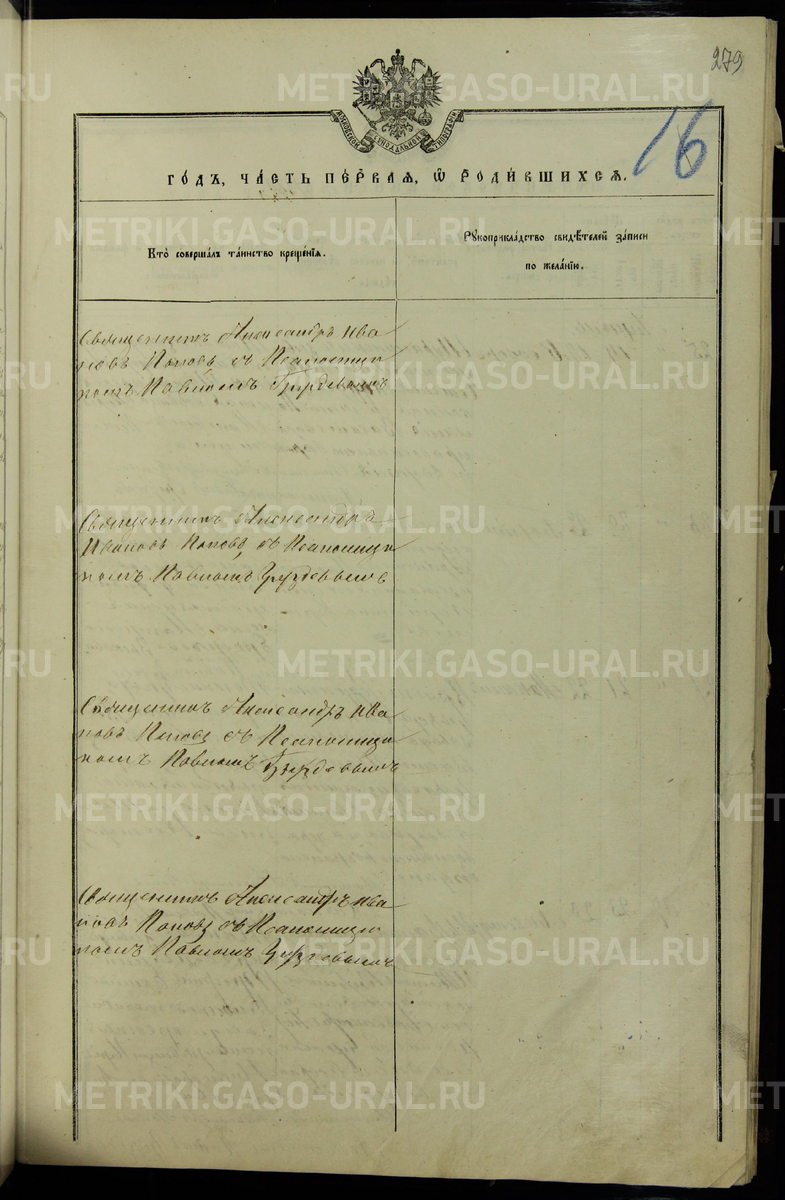 279
16
МОСКОВСКОЙ СѴНОДАЛЬНОЙ ТИПОГРАФІИ
ГО́ДЪ, ЧА́СТЬ ПЕ́РВАЯ, Ѿ РОДИ́ВШИХСЯ.
Кто̀ соверша́лъ та́инство креще́нїя.
Рꙋкоприкла́дство свидѣ́телей за́писи
по жела́нїю.
Священникъ Александръ Ива
новъ Поповъ съ Псаломщи
комъ Павломъ Груздевымъ
Священникъ Александръ
Ивановъ Поповъ съ Псаломщи
комъ Павломъ Груздевымъ
Священникъ Александръ Ива
новъ Поповъ съ Псаломщи
комъ Павломъ Груздевымъ
Священникъ Александръ Ива
новъ Поповъ съ Псаломщи
комъ Павломъ Груздевымъ
METRIKI.GASO-URAL.RU